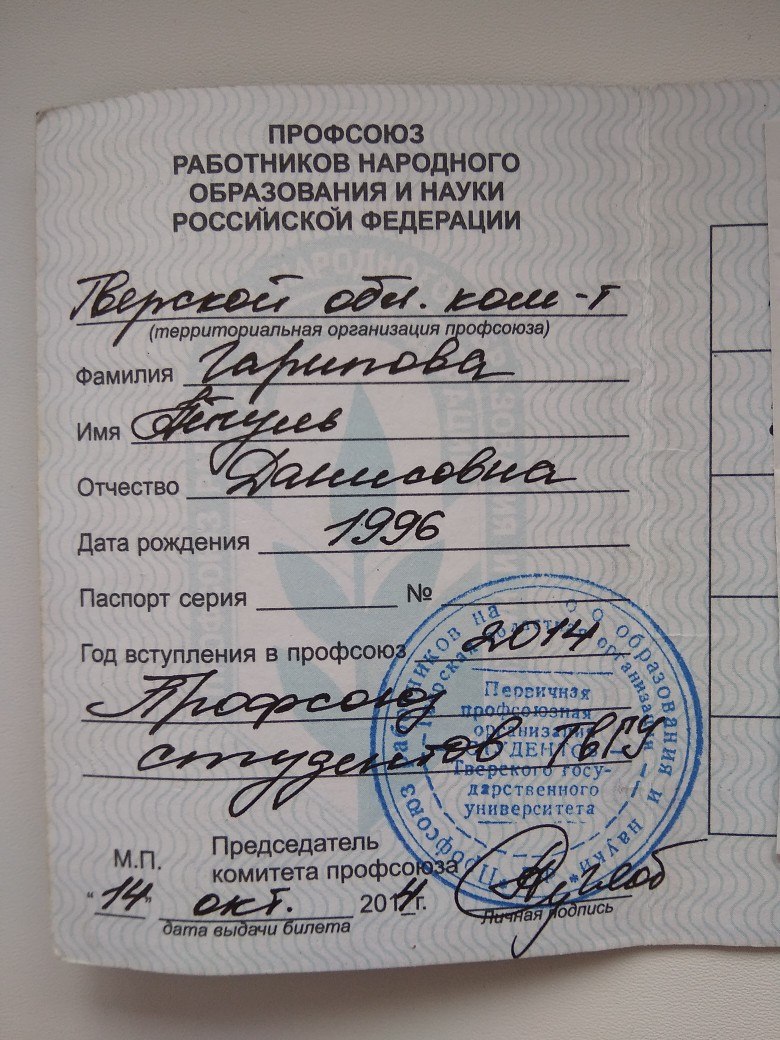 ПРОФСОЮЗ
РАБОТНИКОВ НАРОДНОГО
ОБРАЗОВАНИЯ И НАУКИ
РОССИЙСКОЙ ФЕДЕРАЦИИ
Тверской обл. ком-т
(территориальная организация профсоюза)
Фамилия Гарипова
Имя Айгуль
Отчество Данисовна
Дата рождения 1996
Паспорт серия №
Год вступления в профсоюз 2014
Профсоюз
студентов ТвГУ
Первичная
профсоюзная
организация
СТУДЕНТОВ
Тверского госу-
дарственного
университета
М.П.
Председатель
комитета профсоюза
"14" окт. 2014г.
дата выдачи билета
Личная подпись